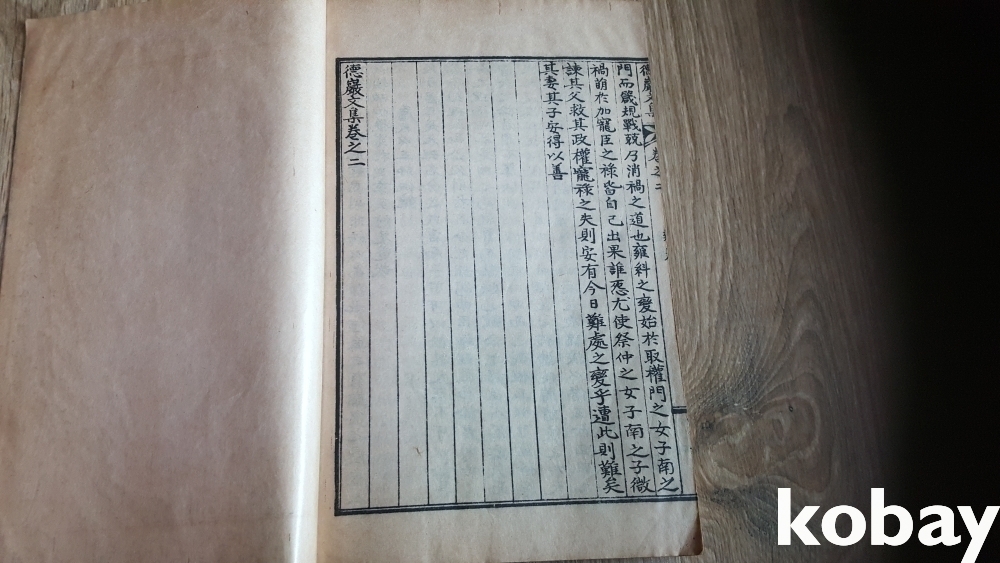 門而幾規戰兢乃消禍之道也雍糾之變始於取權門之女子南之
禍萌於加寵臣之祿皆自己出果誰怨尤使祭仲之女子南之子微
諫其父救其政權寵祿之失則安有今日難處之變乎遭此則難矣
其妻其子安得以善
德巖文集卷之二
kobay